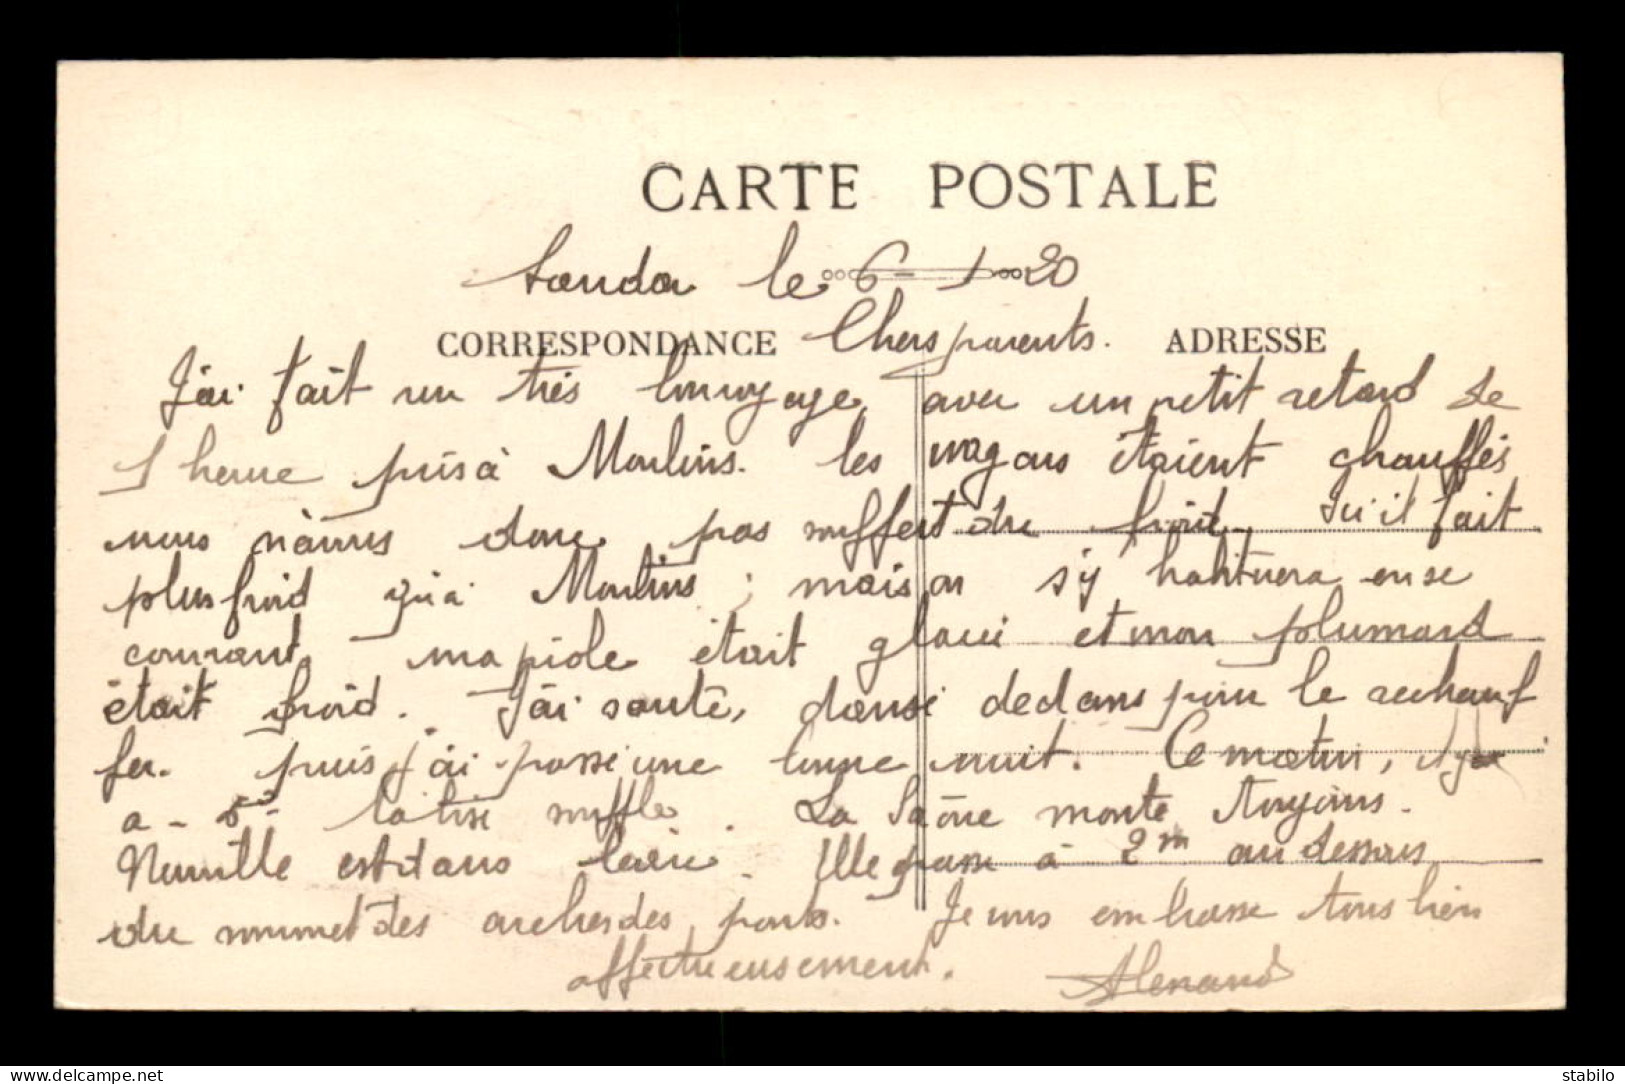 CARTE POSTALE
le 6-1-20
CORRESPONDANCE Chers parents. ADRESSE
J'ai fait un très bon voyage, avec un petit retard de
1 heure pris à Moulins. les wagons étaient chauffés
nous n'avons donc pas souffert du froid. Ici il fait
plus froid qu'à Moulins ; mais on s'y habituera en se
couvrant. ma piole était glacée et mon plumard
était froid. J'ai sauté, dansé dedans pour le réchauf
fer. puis j'ai passé une bonne nuit. Ce matin, il y
a - 5° la bise souffle. La Saône monte toujours.
Neuville est dans l'eau. Elle passe à 2m au dessus
du sommet des arches des ponts. Je vous embrasse tous bien
affectueusement.
delcampe.net
stabilo